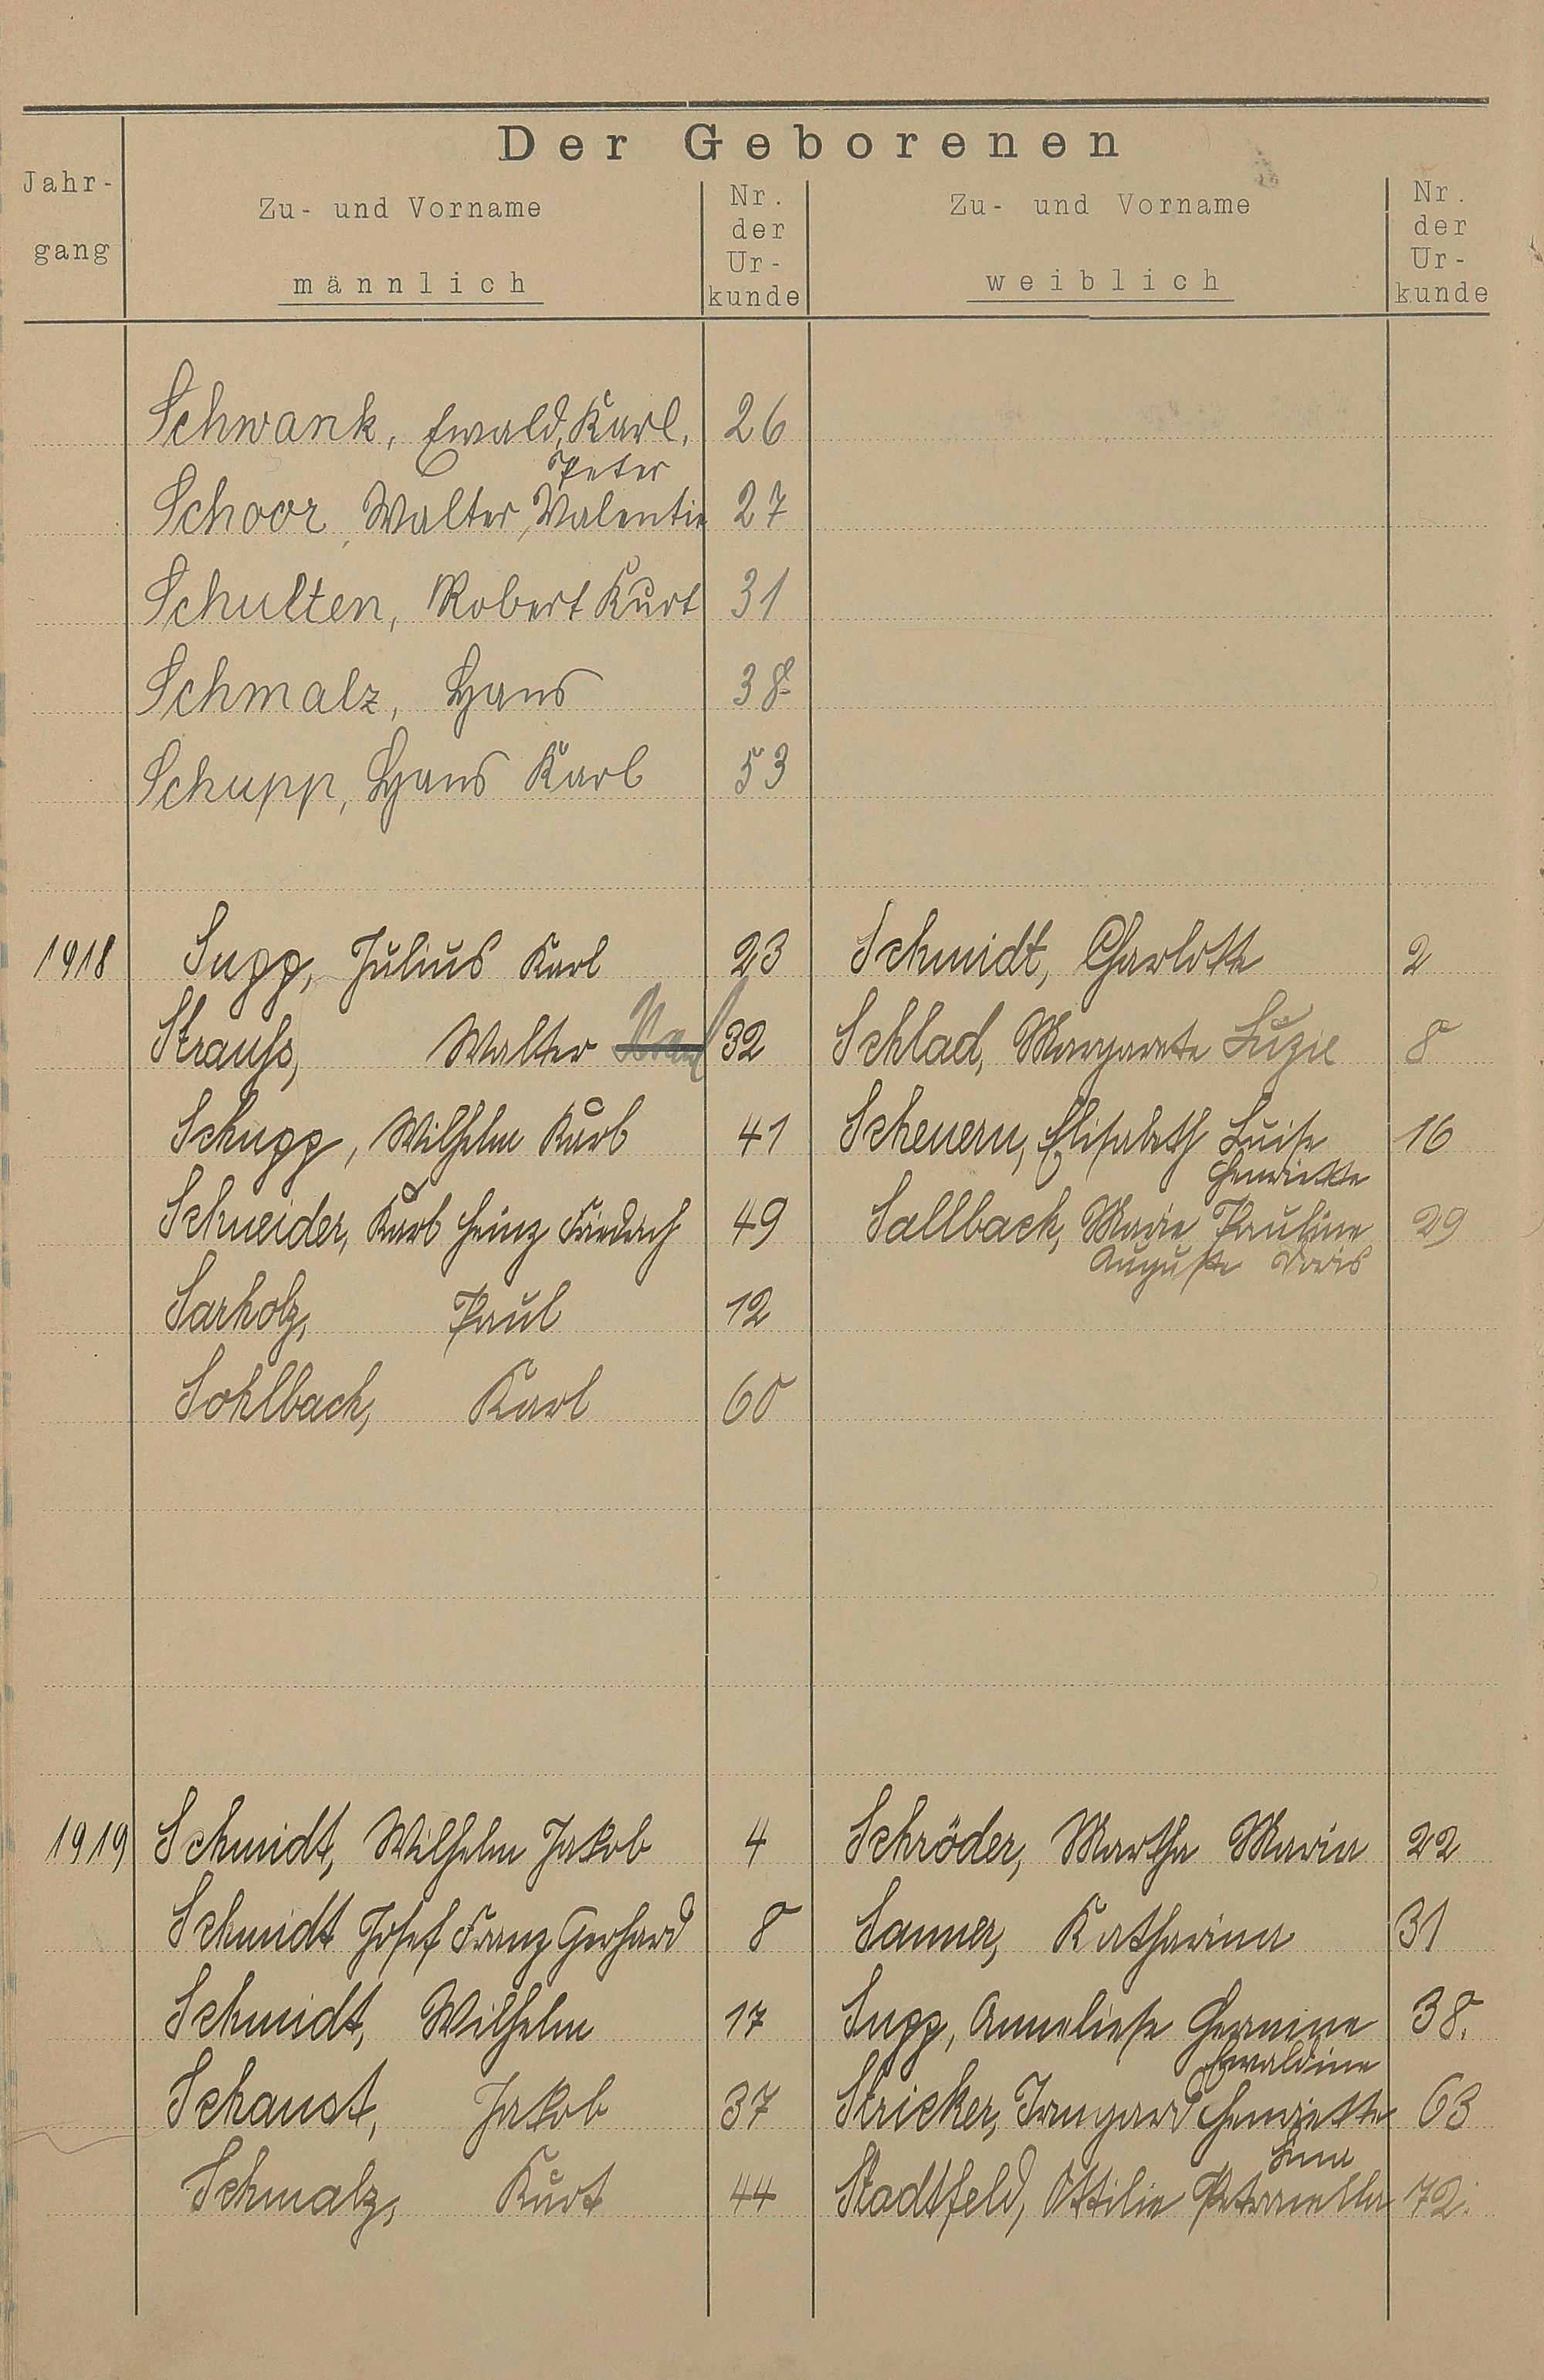 Der Geborenen
Jahr-
gang
Zu- und Vorname
männlich
Nr.
der
Ur-
kunde
Zu- und Vorname
weiblich
Nr.
der
Ur-
kunde
Schwank, Ewald, Karl, 26
Peter
Schoor, Walter, Valentin 27
Schulten, Robert Kurt 31
Schmalz, Hans 38
Schupp, Hans Karl 53
1918 Supp, Julius Karl 23 Schmidt, Charlotte 2
Strauß, Walter 32 Schlad, Margarete Luzie 8
Schupp, Wilhelm Kurt 41 Scheuern, Elisabeth Luise 16
Henriette
Schneider, Kurt Heinz Friedrich 49 Sallback, Marie Pauline 29
Auguste Doris
Sarholz, Paul 12
Sohlbach, Karl 60
1919 Schmidt, Wilhelm Jakob 4 Schröder, Martha Maria 22
Schmidt Josef Franz Gerhard 8 Sanner, Katharina 31
Schmidt, Wilhelm 17 Supp, Anneliese Hermine 38.
Ewaldine
Schaust, Jakob 37 Stricker, Irmgard Henriette 63
Schmalz, Kurt 44 Stadtfeld, Ottilie Petronella 72.